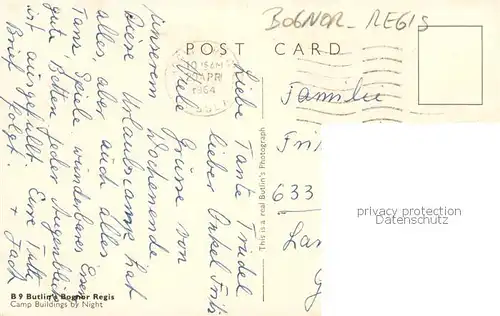 BOGNOR-REGIS
POST CARD
10 15 AM
APR
1964
Familie
633
privacy protection
datenschutz
This is a real Butlin's Photograph
Liebe Tante Trudel
lieber Onkel Fritz
Viele Grüsse von
unserem Wochenende
Diese Urlaubscamp hat
alles, aber auch alles
Tanz Spiele wunderbares Essen
gute Betten Jeder Augenblick
ist ausgefüllt Eure
Brief folgt. + Jack
B 9 Butlin's Bognor Regis
Camp Buildings by Night